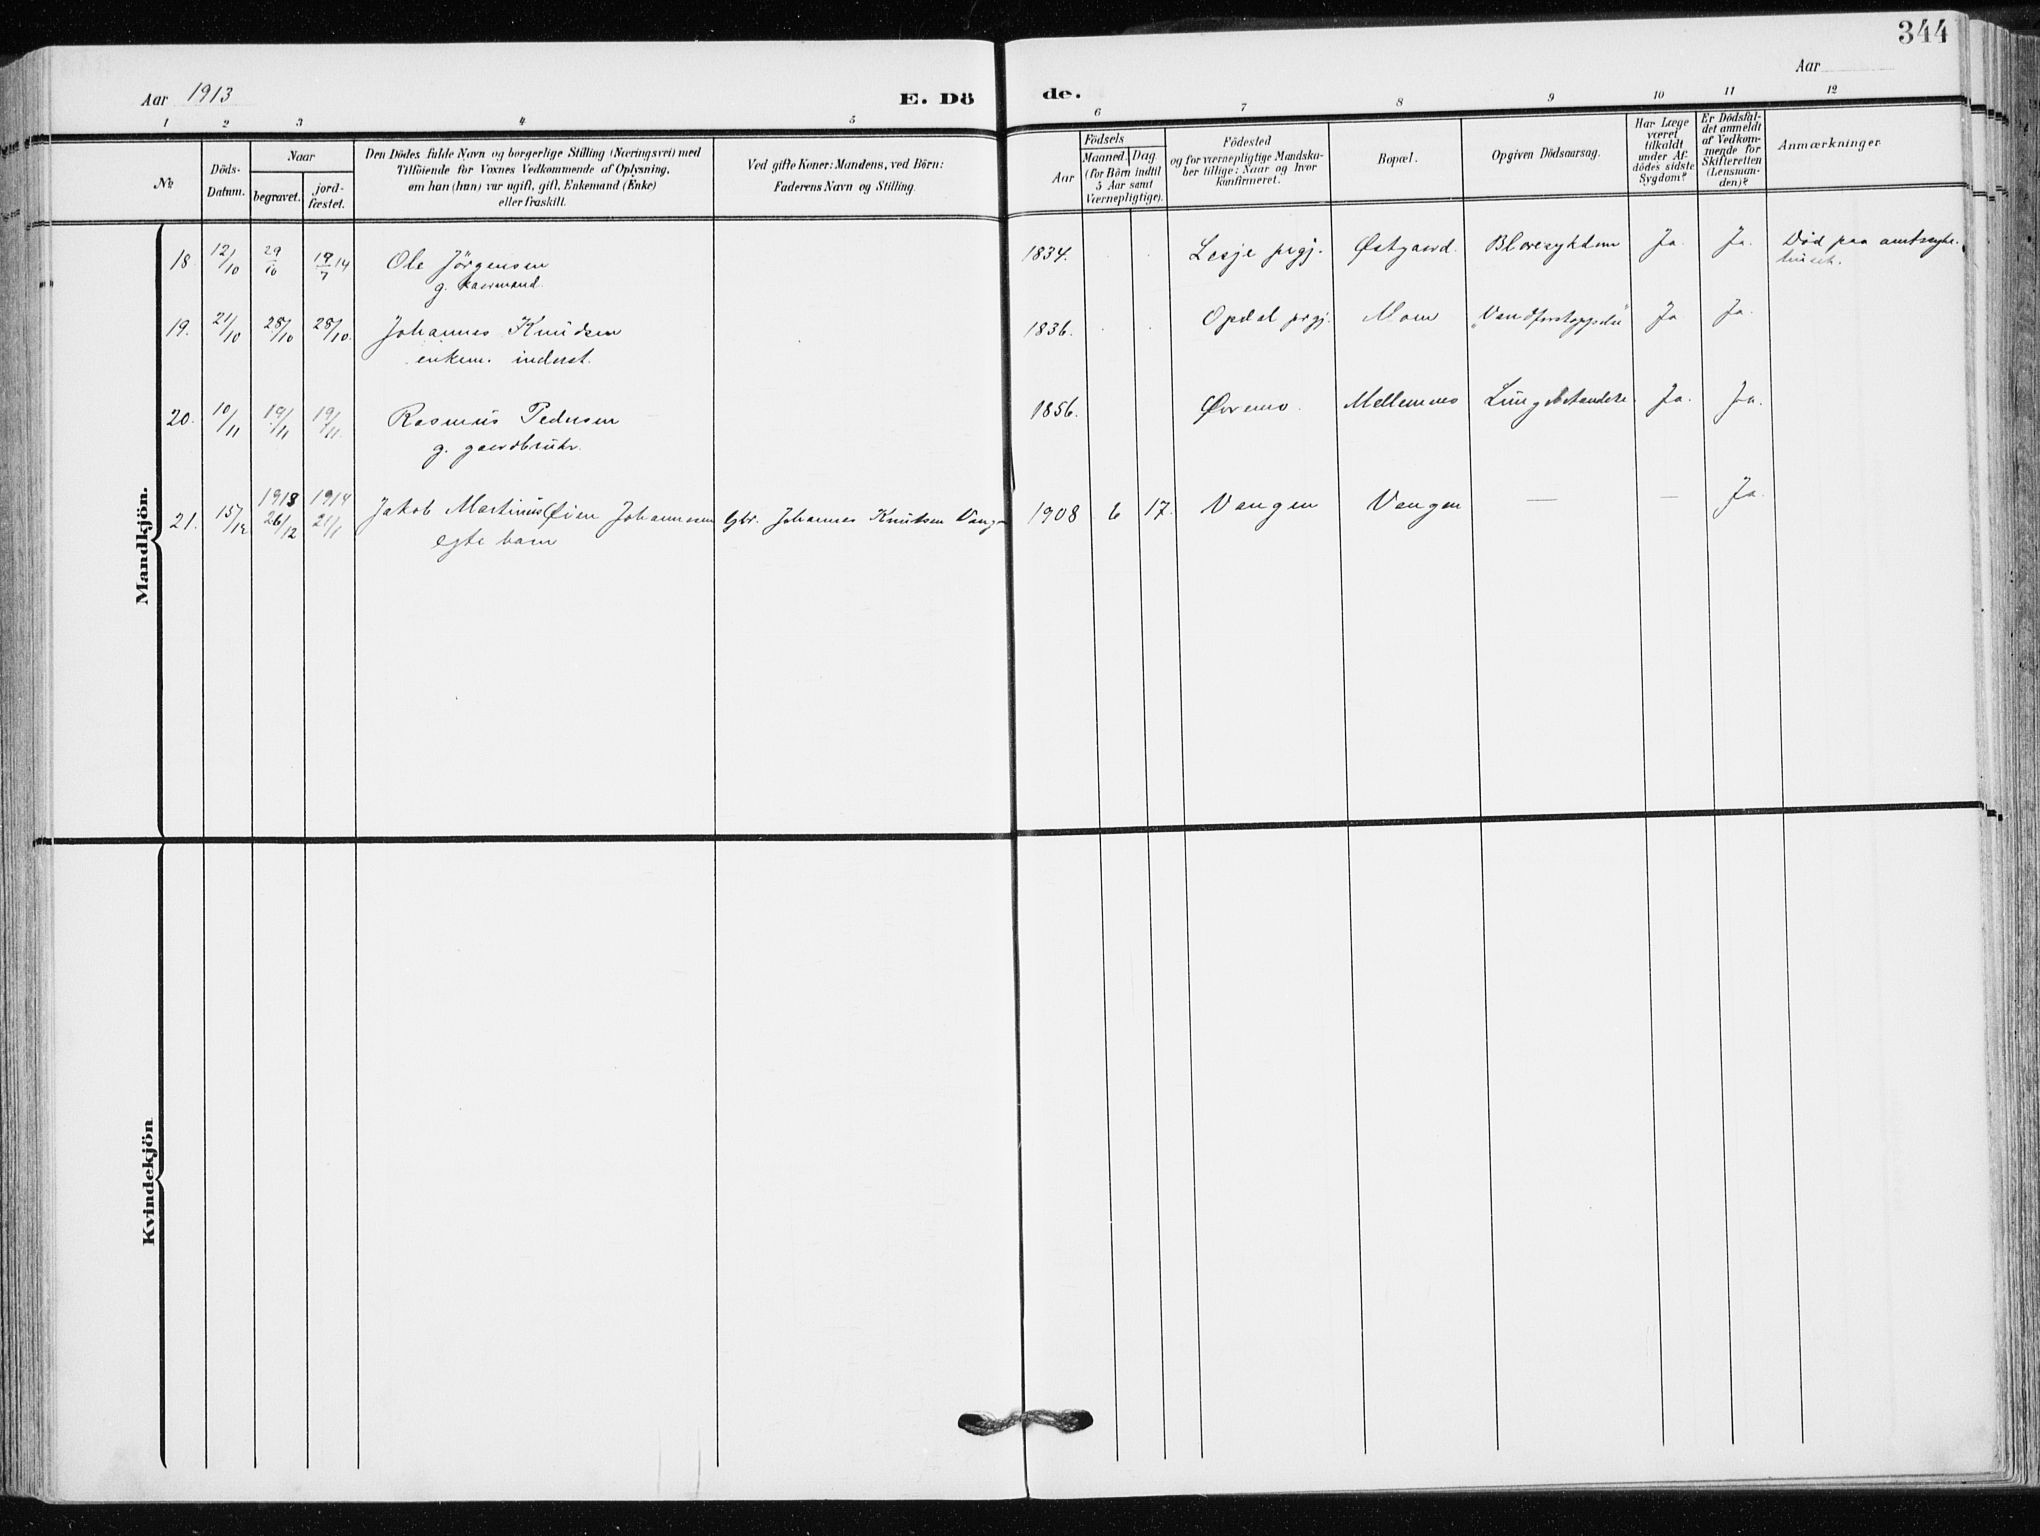 344
Aar 1913
E. Dö
de.
Aar
1 2 3 4 5 6 7 8 9 10 11 12
№
Döds-
Datum.
Naar
begravet.
jord-
fæstet.
Den Dödes fulde Navn og borgerlige Stilling (Næringsvei) med
Tilföiende for Voxnes Vedkommende af Oplysning,
om han (hun) var ugift, gift, Enkemand (Enke)
eller fraskilt.
Ved gifte Koner: Mandens, ved Börn:
Faderens Navn og Stilling.
Födsels
Aar
Maaned. Dag.
(for Börn indtil
5 Aar samt
Værnepligtige).
Födested
og for værnepligtige Mandska-
ber tillige: Naar og hvor
konfirmeret.
Bopæl.
Opgiven Dödsaarsag.
Har Læge
været
tilkaldt
under Af-
dödes sidste
Sygdom?
Er Dödsfal-
det anmeldt
af Vedkom-
mende for
Skifteretten
(Lensman-
den)?
Anmærkninger
Mandkjön.
18. 12/10 29/10 19/7 14 Ole Jörgensen 1834. Lesje prgj. Østgaard. Blæresykdom Ja. Ja. Död paa amtssyke-
g. kaarmand. huset.
19. 21/10 28/10 28/10. Johannes Knudsen 1836. Opdal prgj. Moen „Vandforstoppelse" Ja Ja.
enkem. inderst.
20. 10/11 19/11 19/11. Rasmus Pedersen 1856. Øvremo. Mellemnes Lungebetændelse Ja. Ja.
g. gaardbruker.
1913 1914
21. 15/12 26/12 21/1 Jakob Martinus Øien Johannesen Gbr. Johannes Knutsen Vangen 1908 6 17. Vangen Vangen — — Ja.
egte barn
Kvindekjön